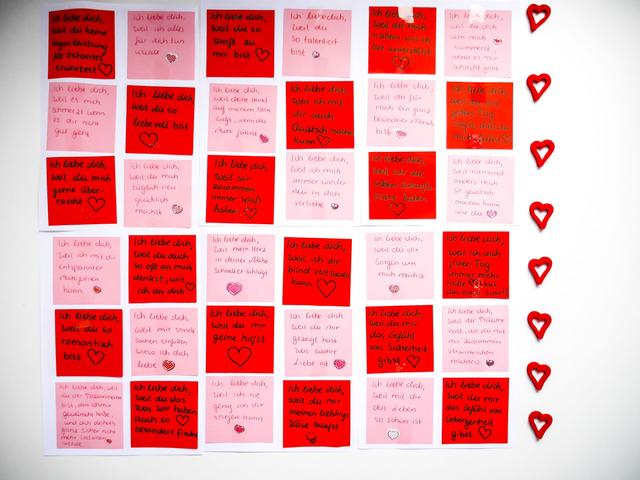 Ich liebe dich,
weil du keine
für Getanes
erwartest
Ich liebe dich,
weil ich alles
für dich tun
würde
Ich liebe dich,
weil du so
sanft zu
mir bist
Ich liebe dich,
weil du so
talentiert
bist
Ich liebe dich,
weil du mich
Ich liebe dich,
weil du
um mich
kümmerst,
wenn es mir
schlecht geht
Ich liebe dich,
weil es mich
schmerzt wenn
es dir nicht
gut geht
Ich liebe dich,
weil du so
liebevoll bist
Ich liebe dich,
weil deine Hand
auf meinem Bein
liegt, wenn du
Auto fährst
Ich liebe dich,
weil ich mit
dir auch
Quatsch machen
kann
Ich liebe dich,
weil du für
mich ein ganz
besonderer Mensch
bist
Ich liebe dich,
weil
Ich liebe dich,
weil du mich
gerne über-
rascht
Ich liebe dich,
weil du mich
täglich neu
glücklich
machst
Ich liebe dich,
weil wir
zusammen
immer Spaß
haben
Ich liebe dich,
weil ich mich
immer wieder
in dich
verliebe
Ich liebe dich,
Ich liebe dich,
weil niemand
anders mich
so glücklich
machen kann
wie du
Ich liebe dich,
weil ich mit dir
entspannter
Auto fahren
kann
Ich liebe dich,
weil du auch
so oft an mich
denkst, wie
ich an dich
Ich liebe dich,
weil mein Herz
in deiner Nähe
schneller schlägt
Ich liebe dich,
weil ich dir
blind vertrauen
kann
Ich liebe dich,
weil du dir
Sorgen um
mich machst
Ich liebe dich,
weil ich dich
jeden Tag
immer mehr
liebe
Ich liebe dich,
weil du so
romantisch
bist
Ich liebe dich,
weil mir soviele
Sachen einfallen
wieso ich dich
liebe
Ich liebe dich,
weil du mir
gerne hilfst
Ich liebe dich,
weil du mir
gezeigt hast
was wahre
Liebe ist
Ich liebe dich,
weil du mir
das Gefühl
von Sicherheit
gibst
Ich liebe dich,
weil du Träume
hast, die du mit
mir zusammen
verwirklichen
möchtest
Ich liebe dich, weil
du der Traummann
bist, den ich mir
gewünscht habe,
und ich deshalb
ganz sicher nicht
mehr
werde
Ich liebe dich,
weil du das
was wir haben
auch so
besonders findest
Ich liebe dich,
weil ich nie
genug von dir
kriegen kann
Ich liebe dich,
weil du mir
meinen Lieblings
Käse kaufst
Ich liebe dich,
weil mit dir
das Leben
so schön ist
Ich liebe dich,
weil du mir
das Gefühl von
Geborgenheit
gibst